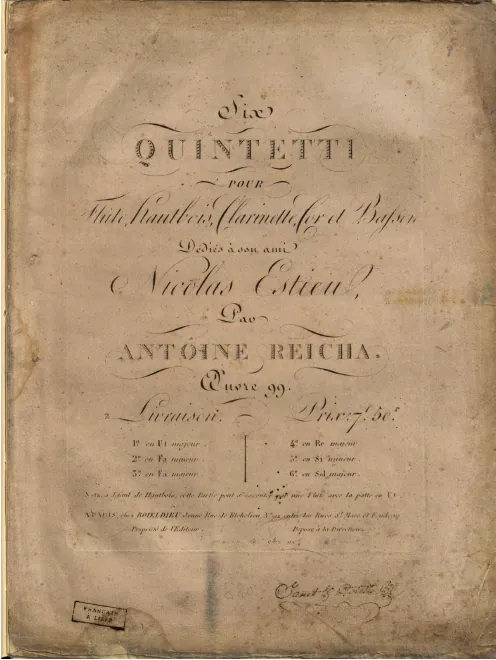 Six
QUINTETTI
POUR
Flûte, Hautbois, Clarinette, Cor et Basson
Dédiés à son ami
Nicolas Estieu,
Par
ANTOINE REICHA.
Œuvre 99.
2 Livraison. Prix: 7f 50c
1er en Ut majeur. 4e en Re majeur
2e en Fa mineur. 5e en Si mineur
3e en La majeur. 6e en Sol majeur.
Nota, à défaut de Hautbois, cette Partie peut s'exécuter sur une Flûte avec la patte en Ut
A PARIS, chez BOIELDIEU jeune Rue de Richelieu, No 92, entre les Rues St Marc et Feydeau
Propriété de l'Editeur. Déposé à la Direction.
Janet
FRANÇAIS
A LILLE